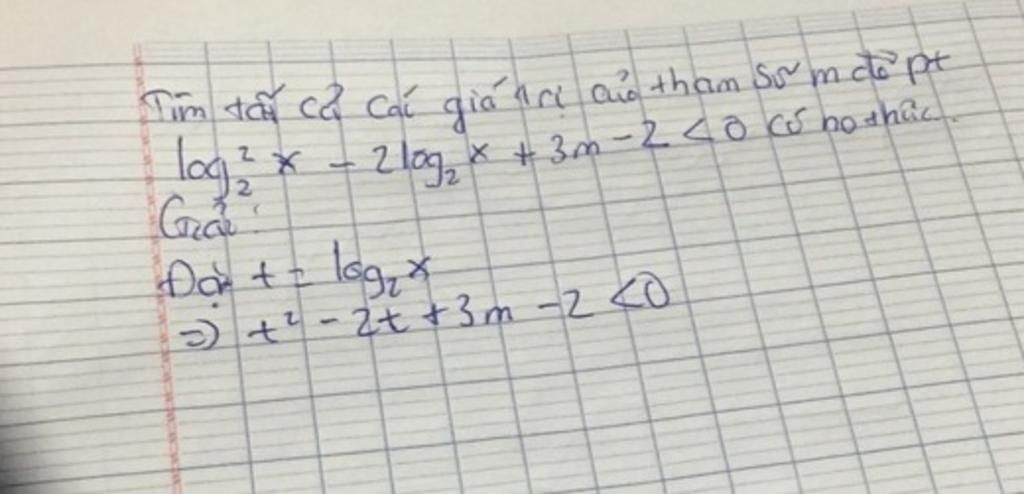 Tìm tất cả các giá trị của tham số m để pt
log₂² x - 2log₂ x + 3m - 2 < 0 có no thực.
Giải:
Đặt t = log₂ x
=> t² - 2t + 3m - 2 < 0